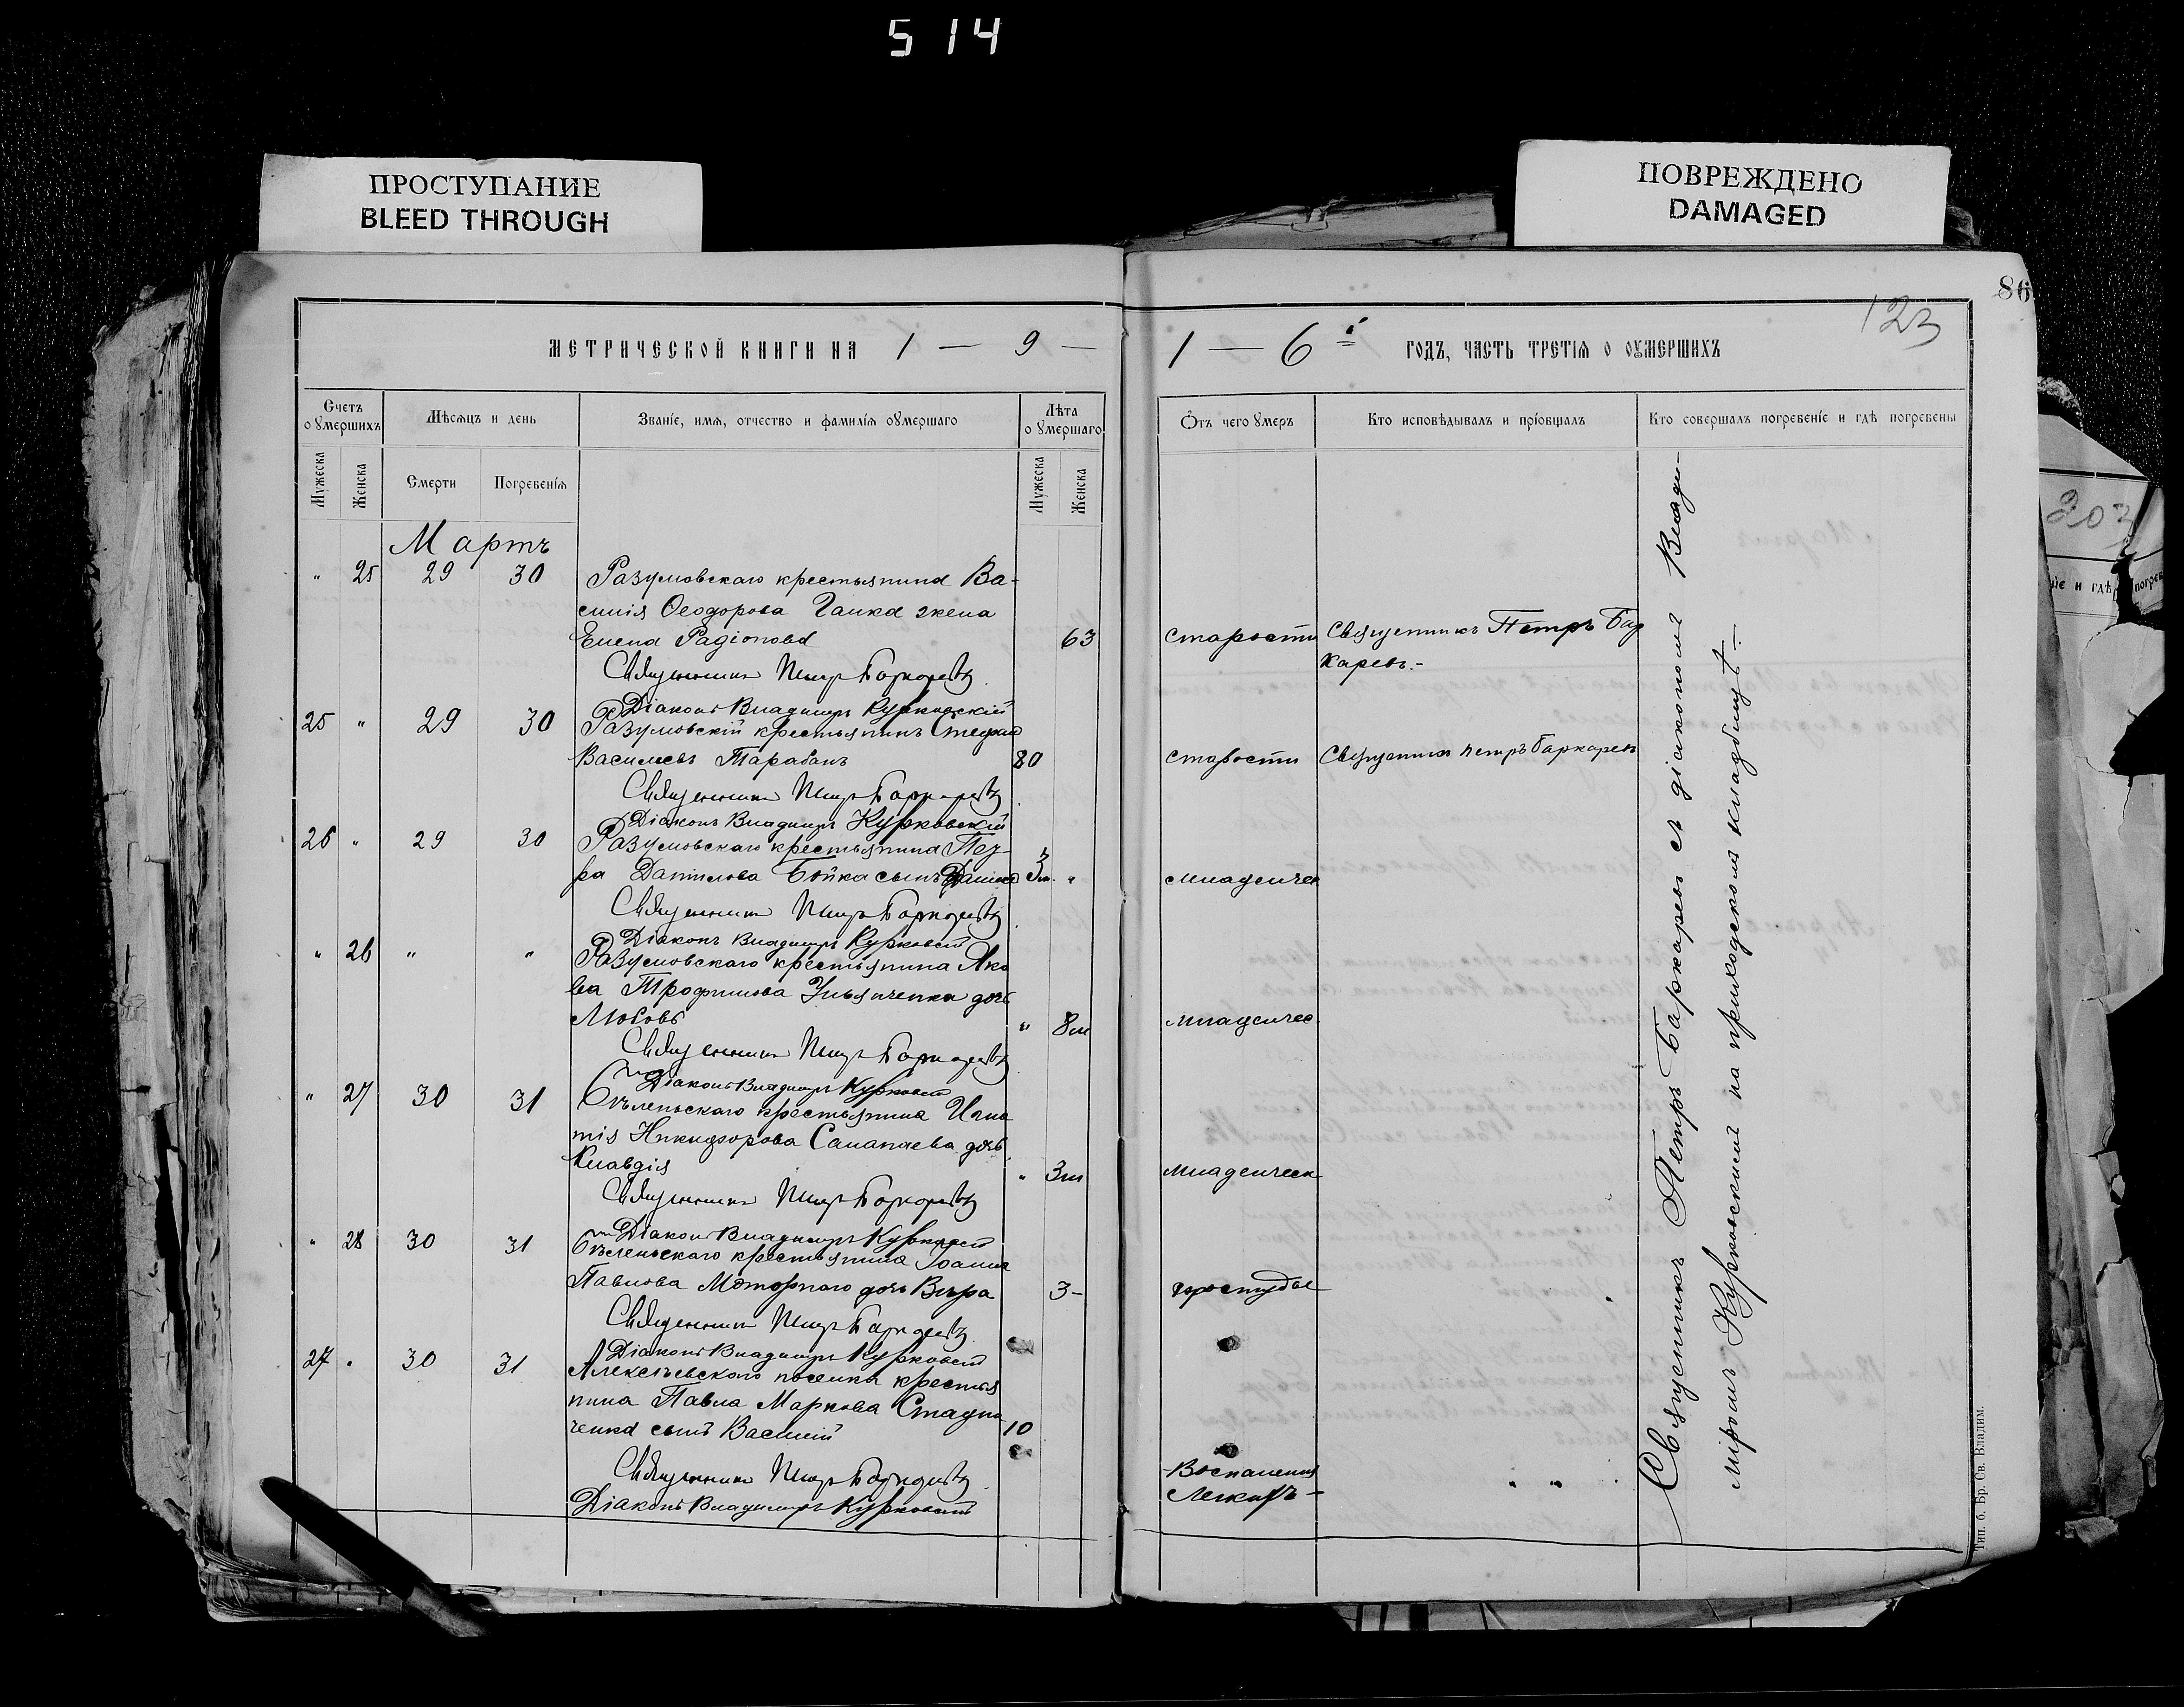 5 14
ПРОСТУПАНИЕ
BLEED THROUGH
ПОВРЕЖДЕНО
DAMAGED
86
123
МЕТРИЧЕСКОЙ КНИГИ НА 1 — 9 —
1 — 6 й ГОДЪ, ЧАСТЬ ТРЕТІЯ О ОУМЕРШИХЪ
Счетъ оумершихъ
Мѣсяцъ и день
Званіе, имя, отчество и фамилія оумершаго
Лѣта оумершаго
Отъ чего умеръ
Кто исповѣдывалъ и пріобщалъ
Кто совершалъ погребеніе и гдѣ погребены
Мужеска
Женска
Смерти
Погребенія
Мужеска
Женска
Мартъ
" 25 29 30 Разумовскаго крестьянина Ва-
силія Ѳеодорова Галка жена
Елена Радіонова 63 старости Священникъ Петръ Бар
карев.-
Священникъ Петръ Баркаревъ
Діаконъ Владиміръ Курковскій
25 " 29 30 Разумовскій крестьянинъ Стефанъ
Василіевъ Тарабанъ 80 старости Священникъ Петръ Баркаревъ
Священникъ Петръ Баркаревъ
Діаконъ Владиміръ Курковскій
26 " 29 30 Разумовскаго крестьянина Пет-
ра Данилова Бойка сынъ 3 м. " младенчес
Священникъ Петръ Баркаревъ
Діаконъ Владиміръ Курковскій
" 26 " " Разумовскаго крестьянина Яко
ва Трофимова Ульянченка дочь
Любовь " 8 м младенчес.
Священникъ Петръ Баркаревъ
Діаконъ Владиміръ Курковскій
" 27 30 31 крестьянина Игна
тія Никифорова дочь
Клавдія " 3 м младенческ
Священникъ Петръ Баркаревъ
Діаконъ Владиміръ Курковскій
" 28 30 31 крестьянина Іоанна
Павлова Моторнаго дочь Вѣра 3- простуды
Священникъ Петръ Баркаревъ
Діаконъ Владиміръ Курковскій
27 " 30 31 Алексѣевскаго поселка крестья
нина Павла Маркова Стадни
ченка сынъ Василій 10
Священникъ Петръ Баркаревъ
Діаконъ Владиміръ Курковскій
Воспаленія
Легкихъ -
Священникъ Петръ Баркаревъ съ діакономъ Влади-
міромъ Курковскимъ на приходскомъ кладбищѣ.-
Тип. б. Бр. Св. Владим.
203
ніе и гдѣ погреб